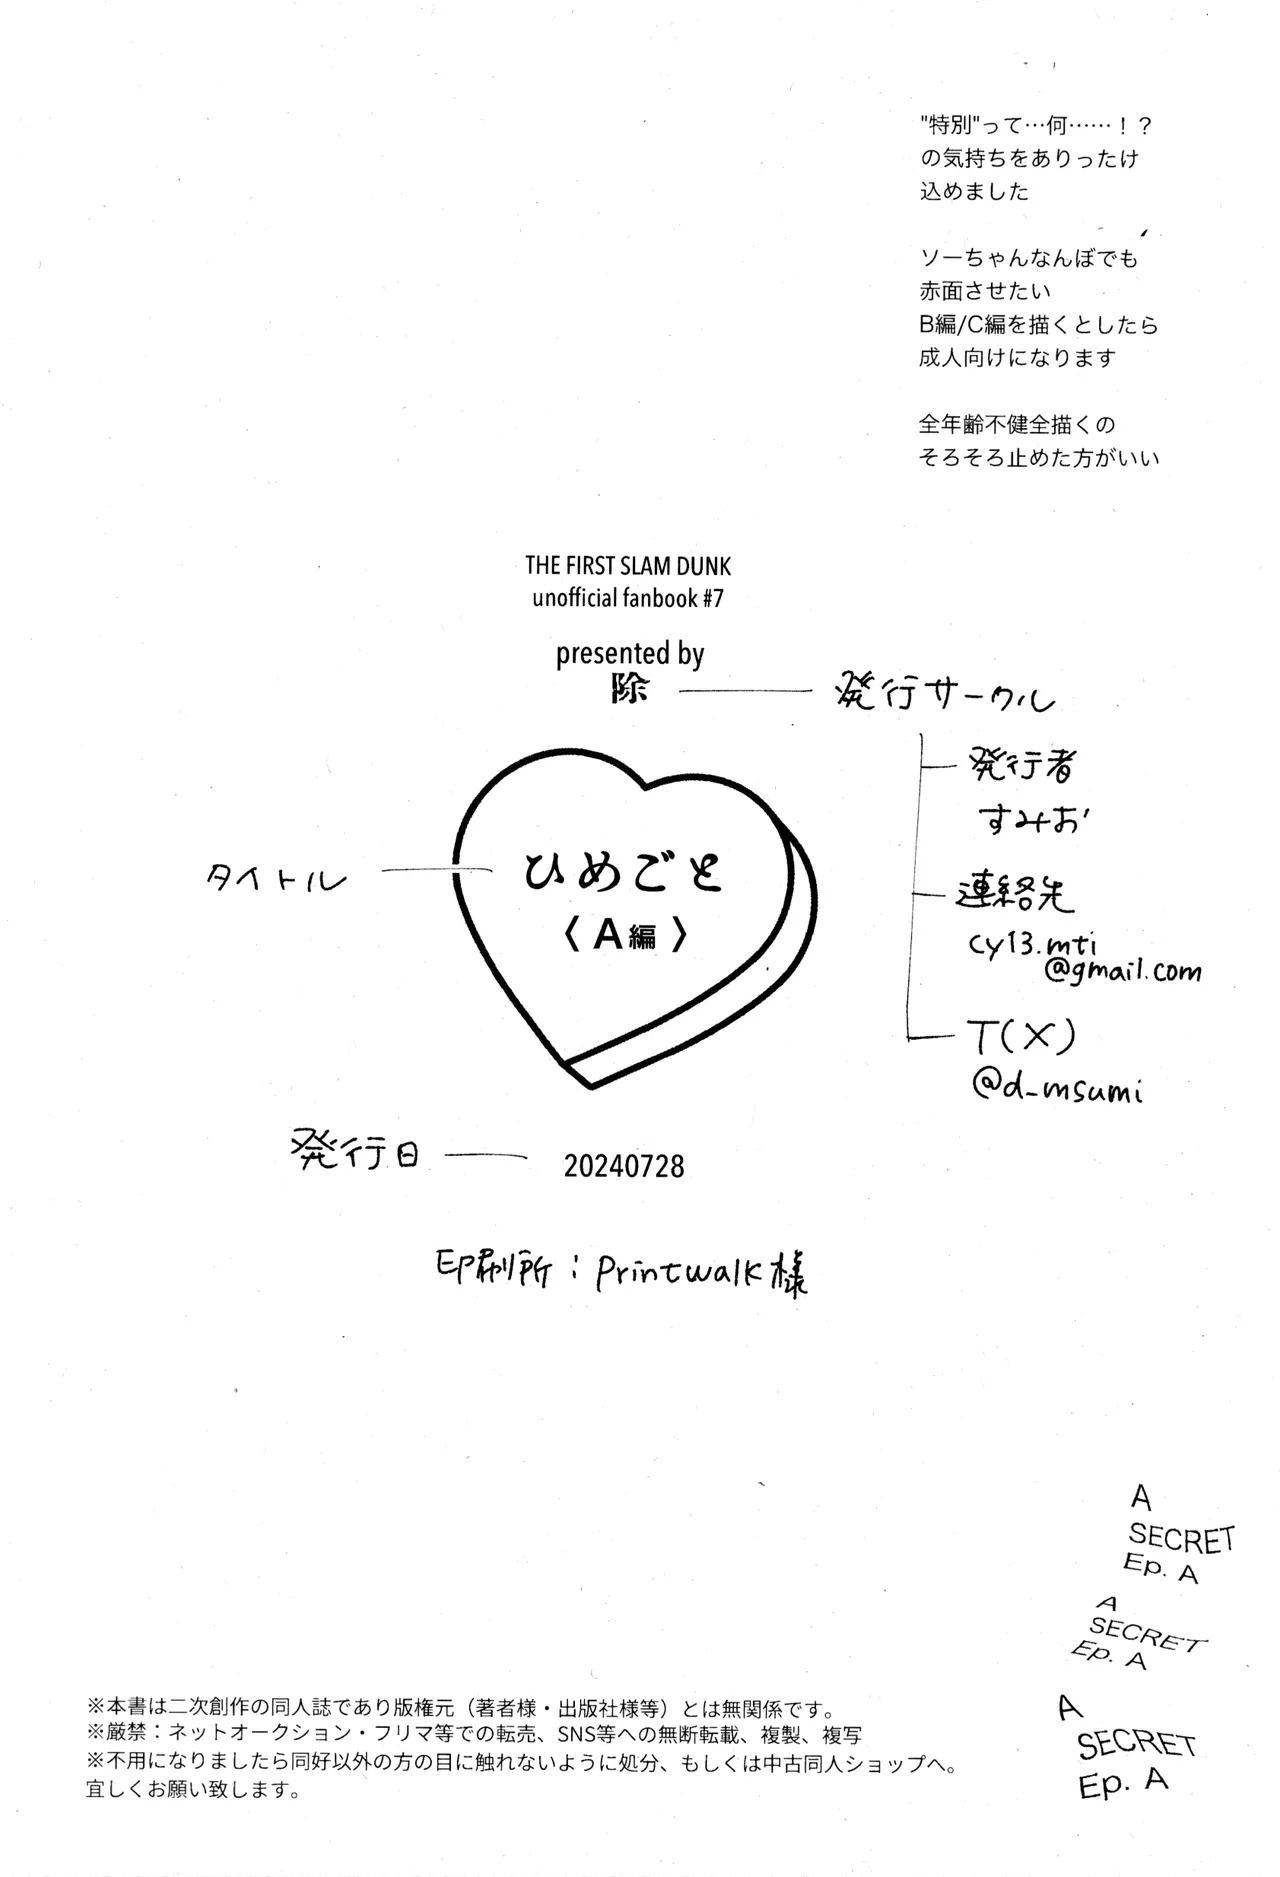 "特別"って…何……！？
の気持ちをありったけ
込めました
ソーちゃんなんぼでも
赤面させたい
B編/C編を描くとしたら
成人向けになります
全年齢不健全描くの
そろそろ止めた方がいい
THE FIRST SLAM DUNK
unofficial fanbook #7
presented by
除
発行サークル
発行者
すみお
連絡先
cy13.mti
@gmail.com
T(X)
@d_msumi
タイトル
ひめごと
〈A編〉
発行日
20240728
印刷所：Printwalk様
A
SECRET
Ep. A
A
SECRET
Ep. A
A
SECRET
Ep. A
※本書は二次創作の同人誌であり版権元（著者様・出版社様等）とは無関係です。
※厳禁：ネットオークション・フリマ等での転売、SNS等への無断転載、複製、複写
※不用になりましたら同好以外の方の目に触れないように処分、もしくは中古同人ショップへ。
宜しくお願い致します。